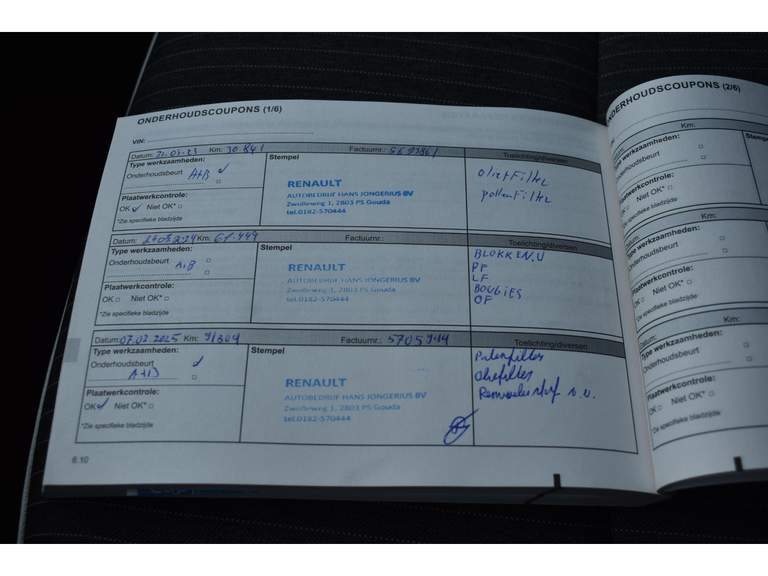 ONDERHOUDSCOUPONS (1/6)
VIN:
Datum: Km: 30.841 Factuurnr.:
Toelichting/diversen
Type werkzaamheden:
Onderhoudsbeurt A+B
Stempel
RENAULT
AUTOBEDRIJF HANS JONGERIUS BV
Zwolleweg 1, 2803 PS Gouda
tel.0182-570444
Plaatwerkcontrole:
OK Niet OK*
*Zie specifieke bladzijde
Olie+Filter
pollenfilter
Datum: Km: Factuurnr.:
Toelichting/diversen
Type werkzaamheden:
Onderhoudsbeurt
A+B
Stempel
RENAULT
AUTOBEDRIJF HANS JONGERIUS BV
Zwolleweg 1, 2803 PS Gouda
tel.0182-570444
Plaatwerkcontrole:
OK Niet OK*
*Zie specifieke bladzijde
BLOKKEN.V
PF
LF
BOUGIES
OF
Datum: 07.02.2025 Km: Factuurnr.:
Toelichting/diversen
Type werkzaamheden:
Onderhoudsbeurt
Stempel
RENAULT
AUTOBEDRIJF HANS JONGERIUS BV
Zwolleweg 1, 2803 PS Gouda
tel.0182-570444
Plaatwerkcontrole:
OK Niet OK*
*Zie specifieke bladzijde
6.10
ONDERHOUDSCOUPONS (2/6)
VIN:
Datum: Km:
Type werkzaamheden:
Onderhoudsbeurt
Plaatwerkcontrole:
OK Niet OK*
*Zie specifieke bladzijde
Datum: Km:
Type werkzaamheden:
Onderhoudsbeurt
Plaatwerkcontrole:
OK Niet OK*
*Zie specifieke bladzijde
Datum: Km:
Type werkzaamheden:
Onderhoudsbeurt
Plaatwerkcontrole:
OK Niet OK*
*Zie specifieke bladzijde